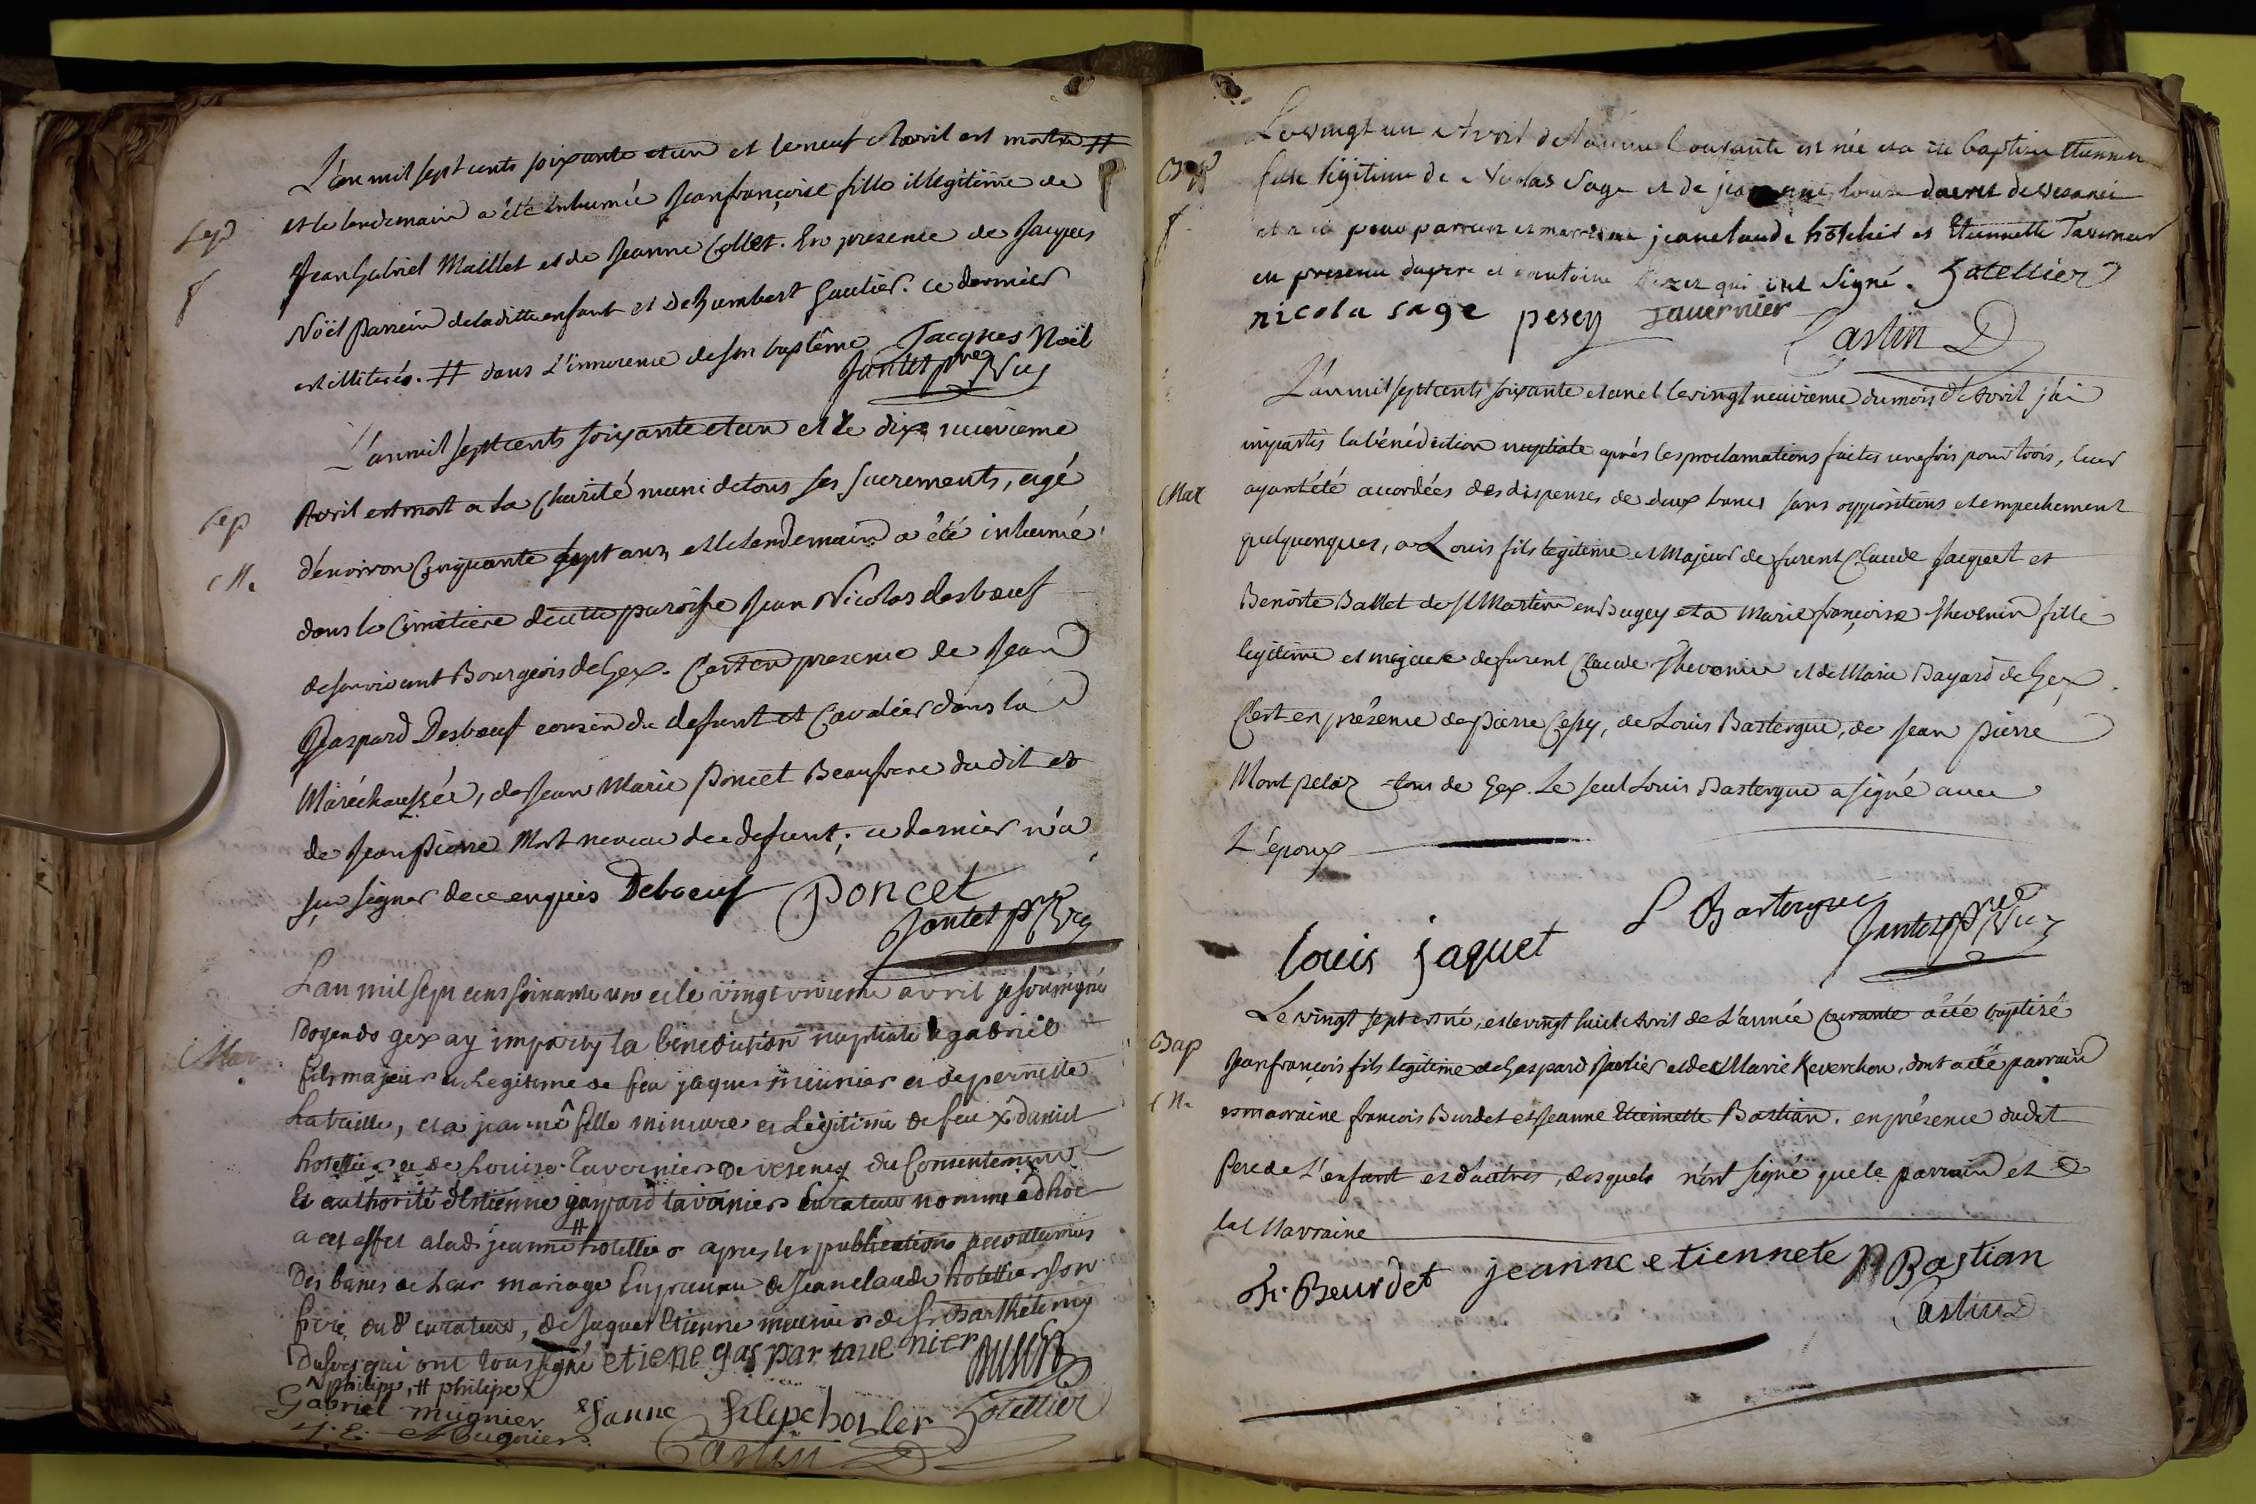 L'an mil sept cents soixante et un et le neuf Avril est morte #
Sep
et le lendemain a été inhumée Jeanfrançoise fille illegitime de
f
Jean Gabriel Maillet et de Jeanne Collet. En presence de Jacques
Noël Parrein de laditte enfant et de humbert Gautier. ce dernier
est illiteré. # dans L'innocence de son baptême Jacques Noël
Jantet pre Vic
L'an mil sept cents soixante et un et le dix neuvieme
Sep
Avril est mort a la Charité muni de tous ses Sacrements, agé
M.
d'environ Cinquante sept ans, et le lendemain a été inhumé
dans le Cimétiere de cette paroisse Jean Nicolas desboeuf
de son vivant Bourgeois de Gex. C'est en presence de Jean
Gaspard Desboeuf cousin du defunt et Cavalier dans la
Maréchaussée, de Jean Marie Poncet Beaufrere dudit et
de Jean Pierre Mort neveu du defunt; ce dernier n'a
sçu signer de ce enquis Deboeuf Poncet
Jantet pre Vic
L'an mil sept cens soixante un et le vingt unieme avril je soussigné
Mar
Doyen de gex ay imparty la benediction nuptiale a gabriel
fils majeur et legitime de feu jaques meünier et de pernette
Labraille, et a jeanne fille mineure et Legitime de feu daniel
hotellier et de Louise Tavernier de vesency du Consentement
Et authorité d'Etienne gaspard tavernier Curateur nommé ad hoc
a cet effet a lad. jeanne # hotellier apres les publications accoutumées
Des banes de Leur mariage En presence de Jeanclaude hotellier son
frere dud curateur, de Jaques Etienne meunier de St Barthelemy
qui ont tous signé etiene gaspar tavernier
philipe, # philipe
Gabriel mugnier Janne filipe hotler hotellier
J. E. Mugnier
Castin D
Le vingt un Avril de l'année Courante est née et a été baptisée Etiennette
Bap
fille légitime de Nicolas Sage et de
f
et a eu pour parrain et marraine jeanclaude hôtelier et Etiennette Tavernier
en presence du pere et d'antoine Pezet qui ont Signé. hotellier
nicola sage pesey Tavernier
Castin D
L'an mil sept cents soixante et un et le vingt neuvieme du mois d'Avril j'ai
imparti la bénédiction nuptiale aprés les proclamations faites une fois pour trois, leur
Mar
ayant été accordées des dispenses de deux bancs sans oppositions et empechement
quelquonques, a Louis fils legitime et Majeur de furent Claude Jacquet et
Benoite Ballet de St Martin en Bugey et a Marie françoise Thevenin fille
legitime et majeure de furent Claude Thevenin et de Marie Bayard de Gex.
C'est en présence de Pierre Cessy, de Louis Bastergue, de Jean Pierre
Montpelaz tous de Gex. Le seul Louis Bastergue a signé avec
L'époux
L Bastergue
Louis jaquet Jantet pre Vic
Le vingt sept est né, et le vingt huit Avril de L'année Courante a été baptisé
Bap
Jeanfrançois fils légitime de Gaspard et de Marie Reverchon, dont a été parrain
M.
et marraine françois Burdet et Jeanne Etiennette Bastian. en présence dudit
Pere de L'enfant et d'autres, desquels n'ont signé que le parrain et
la Marraine
Fr. Beurdet jeanne etiennete Bastian
Castin D